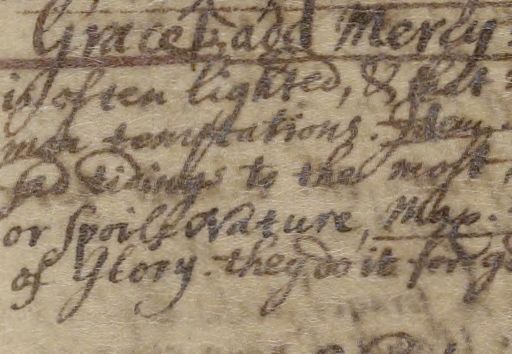 Grace, & add Mercy
is often lighted, & that
temptations.
sad tidings to the most
or Spoils Nature, Map.
of Glory. they do it for